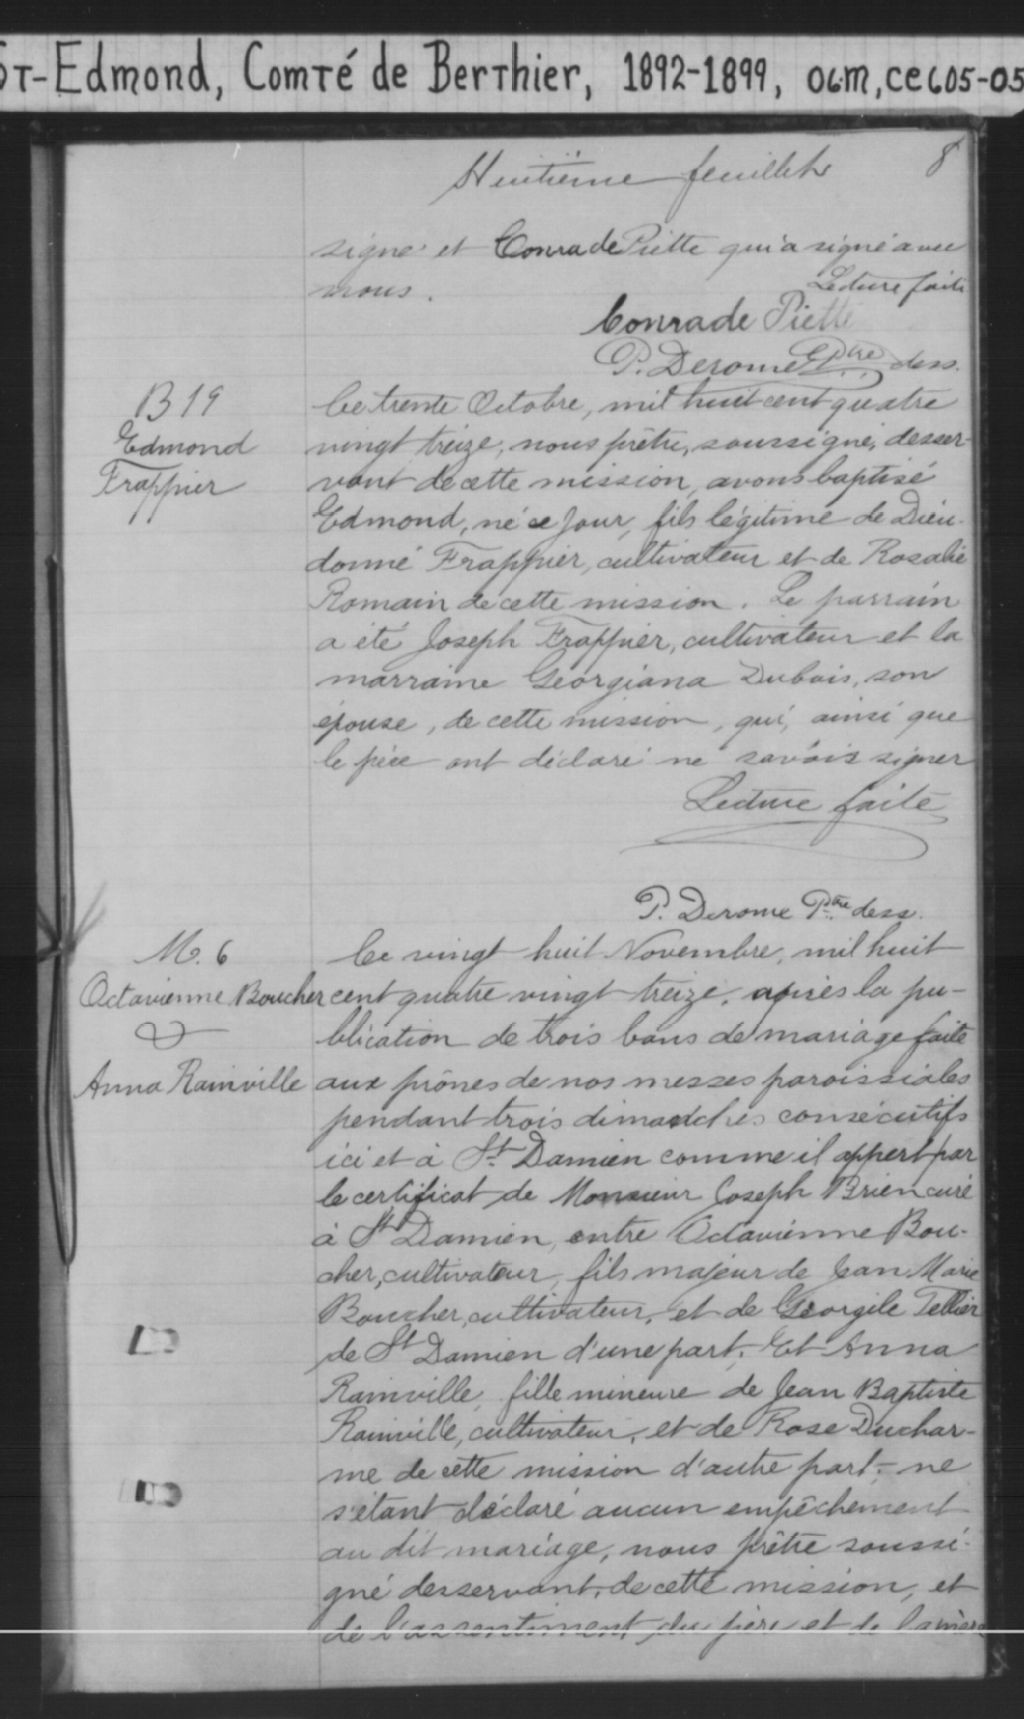 St-Edmond, Comté de Berthier, 1892-1899, 06m, CE605-05
Huitième feuillet 8
signé et Conrade Piette qui a signé avec
nous. Lecture faite
Conrade Piette
P. Derome Ptre dess.
B 19
Edmond
Frappier
Ce trente Octobre, mil huit cent quatre
vingt treize, nous prêtre, soussigné, desser-
vant de cette mission, avons baptisé
Edmond, né ce jour, fils légitime de Dieu-
donné Frappier, cultivateur et de Rosalie
Romain de cette mission. Le parrain
a été Joseph Frappier, cultivateur et la
marraine Georgiana Dubois, son
épouse, de cette mission, qui, ainsi que
le père ont déclaré ne savoir signer
Lecture faite
P. Derome Ptre dess.
M. 6
Octavienne Boucher
&
Anna Rainville
Ce vingt huit Novembre, mil huit
cent quatre vingt treize, après la pu-
blication de trois bans de mariage faite
aux prônes de nos messes paroissiales
pendant trois dimanches consécutifs
ici et à St Damien comme il appert par
le certificat de Monsieur Joseph Brien curé
à St Damien, entre Octavienne Bou-
cher, cultivateur, fils majeur de Jean Marie
Boucher, cultivateur, et de Georgile Tellier
de St Damien d'une part; Et Anna
Rainville, fille mineure de Jean Baptiste
Rainville, cultivateur, et de Rose Duchar-
me de cette mission d'autre part; ne
s'étant déclaré aucun empêchement
au dit mariage, nous prêtre soussi-
gné desservant de cette mission, et
de l'assentiment du père et de la mère